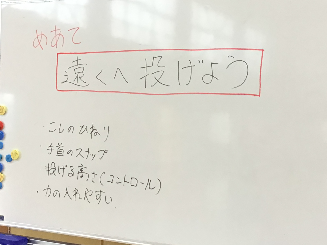 めあて
遠くへ投げよう
・こしのひねり
・手首のスナップ
投げる高さ(コントロール)
・力の入れやすい